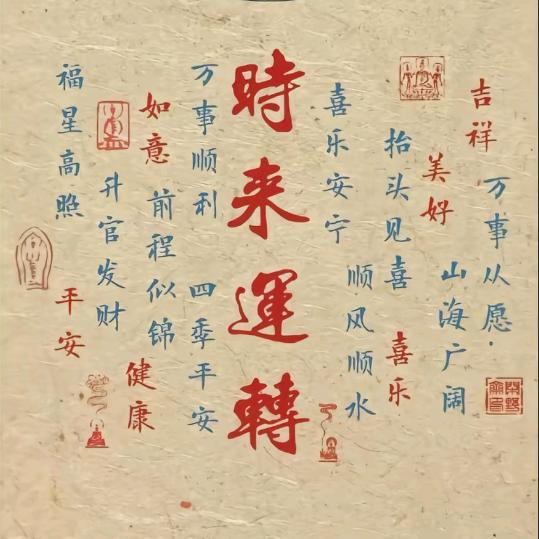 吉祥
万事从愿·
美好
山海广阔
抬头见喜
喜乐
喜乐安宁
顺风顺水
時来運轉
万事顺利
四季平安
如意
前程似锦
健康
升官发财
福星高照
平安